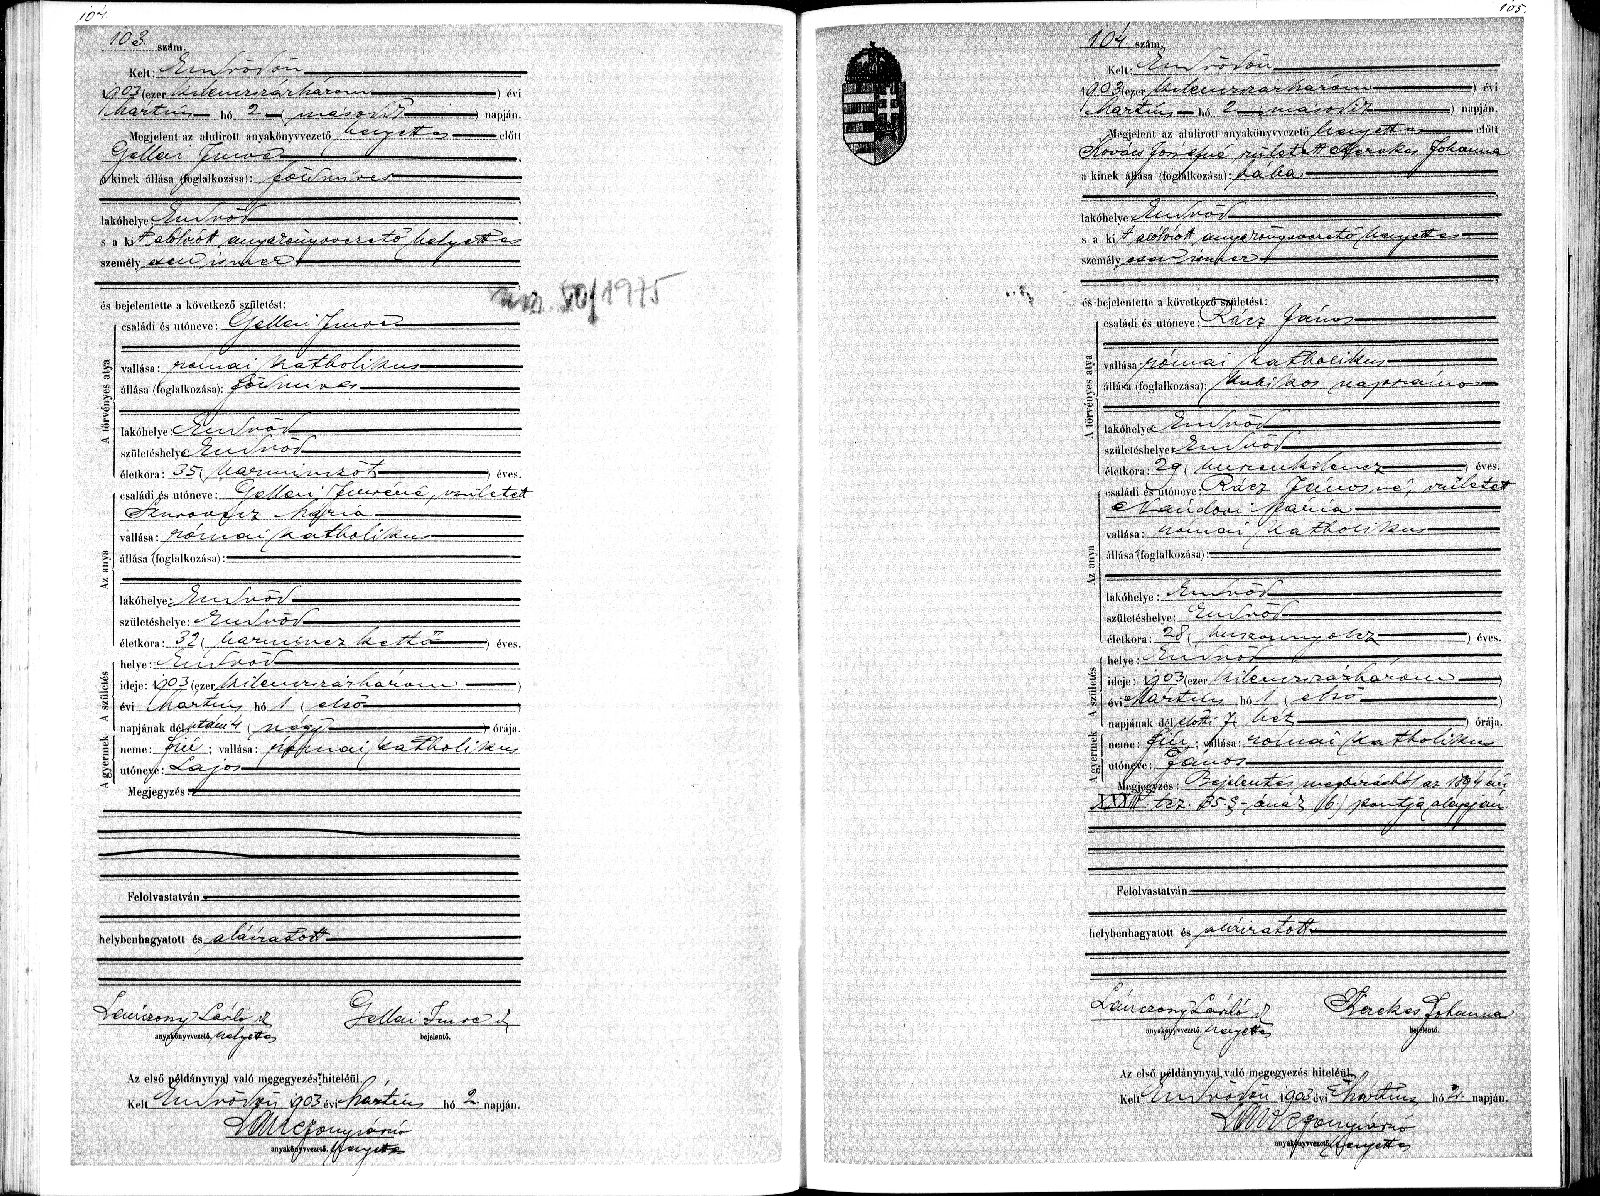 104
103 szám.
Kelt: Endrődön
1903 (ezer kilenczszázhárom) évi
Martius hó 2 (második) napján.
Megjelent az alulirott anyakönyvvezető helyettes előtt
Gellai Imre
a kinek állása (foglalkozása): földmives
lakóhelye: Endrőd
s a kit alólirott anyakönyvvezető helyettes
személyesen ismer
és bejelentette a következő születést:
A törvényes atya
családi és utóneve: Gellai Imre
vallása: római katholikus
állása (foglalkozása): földmives
lakóhelye: Endrőd
születéshelye: Endrőd
életkora: 35 (harminczöt) éves.
Az anya
családi és utóneve: Gellai Imréné, született
Mária
vallása: római katholikus
állása (foglalkozása):
lakóhelye: Endrőd
születéshelye: Endrőd
életkora: 32 (harminczkettő) éves.
A születés
helye: Endrőd
ideje: 1903 (ezer kilenczszázhárom)
évi Martius hó 1 (első)
napjának dél utáni 4 (négy) órája.
A gyermek
neme: fiú; vallása: római katholikus
utóneve: Lajos
Megjegyzés:
Felolvastatván
helybenhagyatott és aláiratott
László
anyakönyvvezető. helyettes
Gellai Imre
bejelentő.
Az első példánynyal való megegyezés hiteléül.
Kelt Endrődön 1903 évi Martius hó 2 napján.
anyakönyvvezető. helyettes
50/1975
105.
104 szám.
Kelt: Endrődön
1903 (ezer kilenczszázhárom) évi
Martius hó 2 (második) napján.
Megjelent az alulirott anyakönyvvezető helyettes előtt
Kovács Józsefné született Kerekes Johanna
a kinek állása (foglalkozása): bába
lakóhelye: Endrőd
s a kit alólirott anyakönyvvezető helyettes
személyesen ismer
és bejelentette a következő születést:
A törvényes atya
családi és utóneve: Rácz János
vallása: római katholikus
állása (foglalkozása): kubikos napszámos
lakóhelye: Endrőd
születéshelye: Endrőd
életkora: 29 (huszonkilencz) éves.
Az anya
családi és utóneve: Rácz Jánosné, született
Nándori Mária
vallása: római katholikus
állása (foglalkozása):
lakóhelye: Endrőd
születéshelye: Endrőd
életkora: 28 (huszonnyolcz) éves.
A születés
helye: Endrőd
ideje: 1903 (ezer kilenczszázhárom)
évi Martius hó 1 (első)
napjának dél előtti 7 (hét) órája.
A gyermek
neme: fiú; vallása: római katholikus
utóneve: János
Megjegyzés: Bejelentés megbizásból az 1894 évi
XXXIII tcz. 35 §-ának (b) pontja alapján
Felolvastatván
helybenhagyatott és aláiratott
László
anyakönyvvezető. helyettes
Kerekes Johanna
bejelentő.
Az első példánynyal való megegyezés hiteléül.
Kelt Endrődön 1903 évi Martius hó 2 napján.
anyakönyvvezető. helyettes